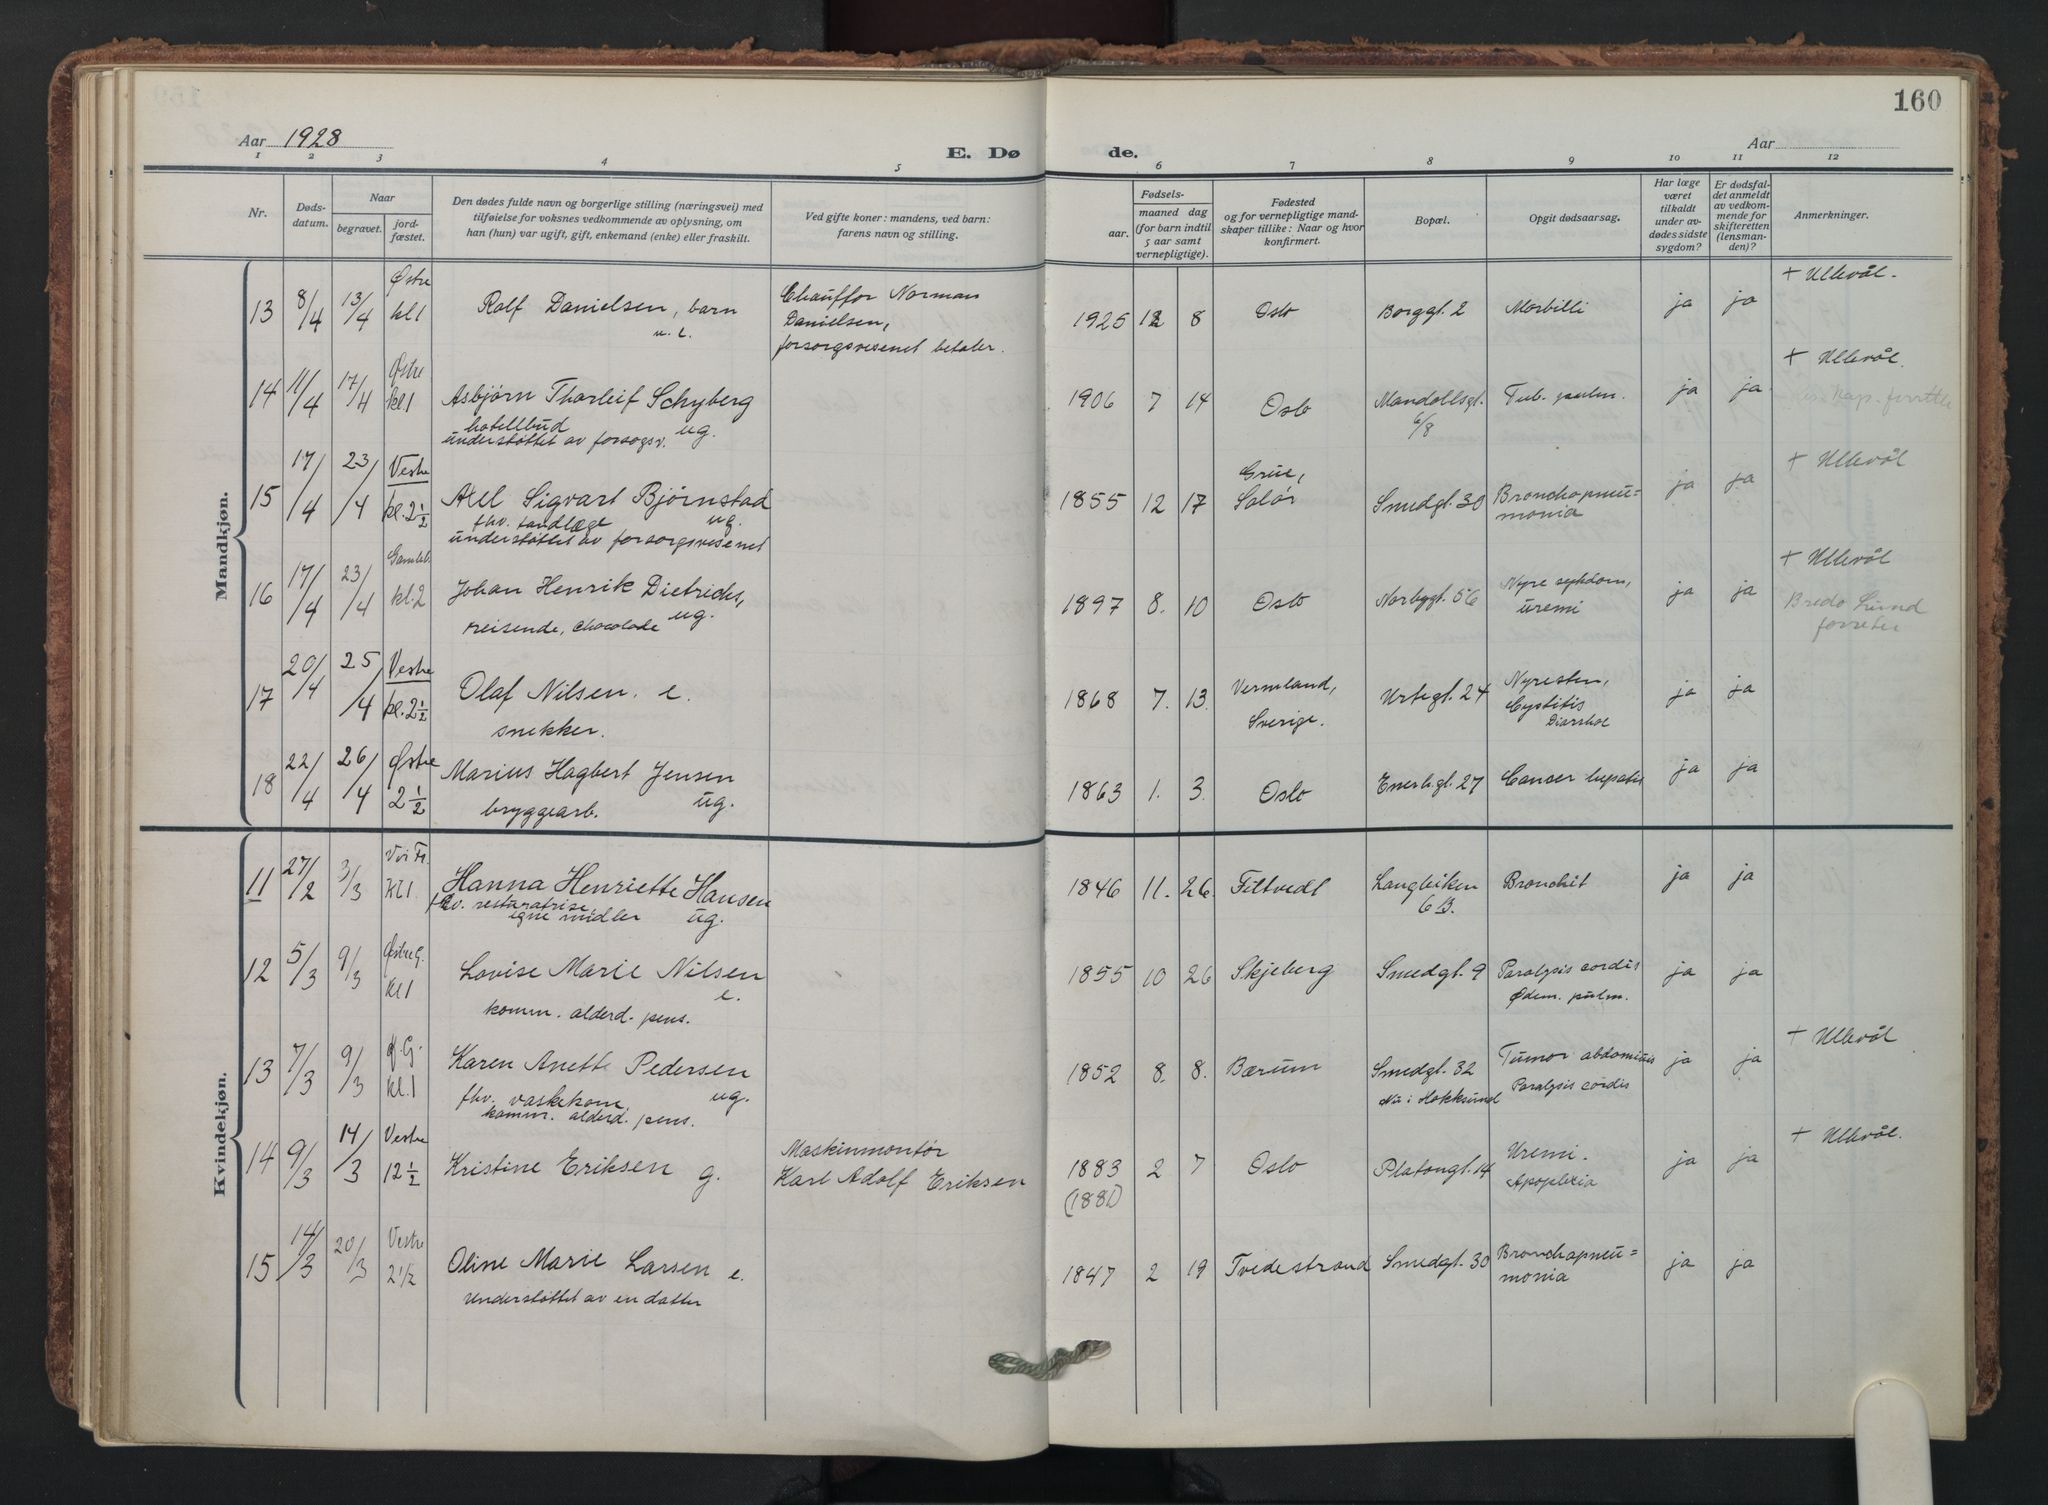 160
Aar 1928
E. Døde.
Aar
1 2 3 4 5 6 7 8 9 10 11 12
Nr.
Døds-
datum.
Naar
begravet.
jord-
fæstet.
Den dødes fulde navn og borgerlige stilling (næringsvei) med
tilføielse for voksnes vedkommende av oplysning, om
han (hun) var ugift, gift, enkemand (enke) eller fraskilt.
Ved gifte koner: mandens, ved barn:
farens navn og stilling.
Fødsels-
aar.
maaned dag
(for barn indtil
5 aar samt
vernepligtige).
Fødested
og for vernepligtige mand-
skaper tillike: Naar og hvor
konfirmert.
Bopæl.
Opgit dødsaarsag.
Har læge
været
tilkaldt
under av-
dødes sidste
sygdom?
Er dødsfal-
det anmeldt
av vedkom-
mende for
skifteretten
(lensman-
den)?
Anmerkninger.
Mandkjøn.
13 8/4 13/4 Østre kl 1 Rolf Danielsen, barn u. e. Chauffør Norman
Danielsen,
forsorgsvesenet betaler.
1925 12 8 Oslo Borggt. 2 Morbilli ja ja + Ullevål.
14 11/4 17/4 Østre kl. 1 Asbjørn Thorleif Schyberg
hotellbud ug.
understøttet av forsogsv.
1906 7 14 Oslo Mandallsgt. 6/8 Tub. pulm. ja ja + Ullevål
15 17/4 23/4 Vestre kl. 2 1/2 Axel Sigvart Bjørnstad
fhv. tandlæge ug.
understøttet av forsorgsvesenet
1855 12 17 Grue, Solør Smedgt. 30 Bronchopneu=
monia ja ja + Ullevål
16 17/4 23/4 Gamleb. kl. 2 Johan Henrik Dietrichs,
reisende, chocolade ug.
1897 8. 10 Oslo Norbygt. 56 Nyre sykdom,
uremi ja ja + Ullevål
Bredo Lund
forretter
17 20/4 25/4 Vestre kl. 2 1/2 Olaf Nilsen. e.
snekker.
1868 7. 13. Vermland,
Sverige. Urtegt. 24 Nyresten,
Cystitis
Diarrhoe ja ja
18 22/4 26/4 Østre 2 1/2 Marius Hagbert Jensen
bryggearb. ug.
1863 1. 3. Oslo Enerh.gt. 27 Cancer hepatis ja ja
Kvindekjøn.
11 27/2 3/3 Kl 1 Hanna Henriette Hansen
fhv. resturatrise,
egne midler ug.
1846 11. 26. Filtvedt Langleiken
6 B. Bronchit ja ja
12 5/3 9/3 Østre G. Kl 1 Lovise Marie Nilsen
e.
komm. alderd. pens.
1855 10 26 Skjeberg Smedgt. 9 Paralysis cordis
Ødem. pulm. ja ja
13 7/3 9/3 Ø. G. kl. 1 Karen Anette Pedersen
fhv. vaskekone ug.
komm. alderd. pens.
1852 8. 8. Bærum Smedgt. 32
Nu i Hokksund Tumor abdominis
Paralysis cordis ja ja + Ullevål
14 9/3 14/3 Vestre 12 1/2 Kristine Eriksen g. Maskinmontør
Karl Adolf Eriksen
1883
(1881) 2 7 Oslo Platougt. 14 Uremi.
Apoplexia ja ja + Ullevål.
15 14/3 20/3 Vestre 2 1/2 Oline Marie Larsen e.
Understøttet av en datter
1847 2 19 Tvedestrand Smedgt. 30 Bronchopneu=
monia ja ja